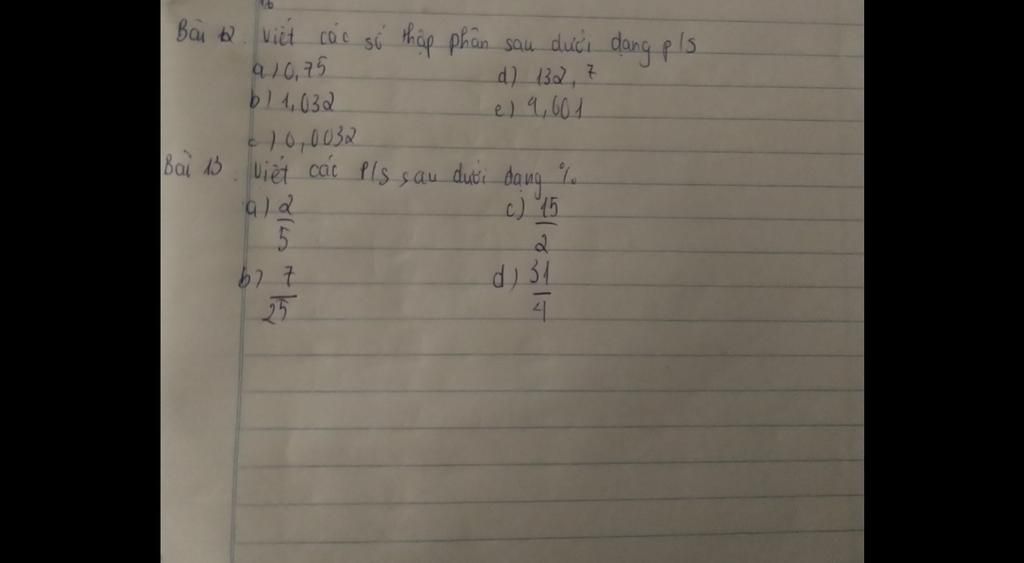 Bài 12. Viết các số thập phân sau dưới dạng p/s
a) 0,75 d) 132,7
b) 1,032 e) 9,601
c) 0,0032
Bài 13. Viết các p/s sau dưới dạng %
a) 2/5 c) 15/2
b) 7/25 d) 31/4